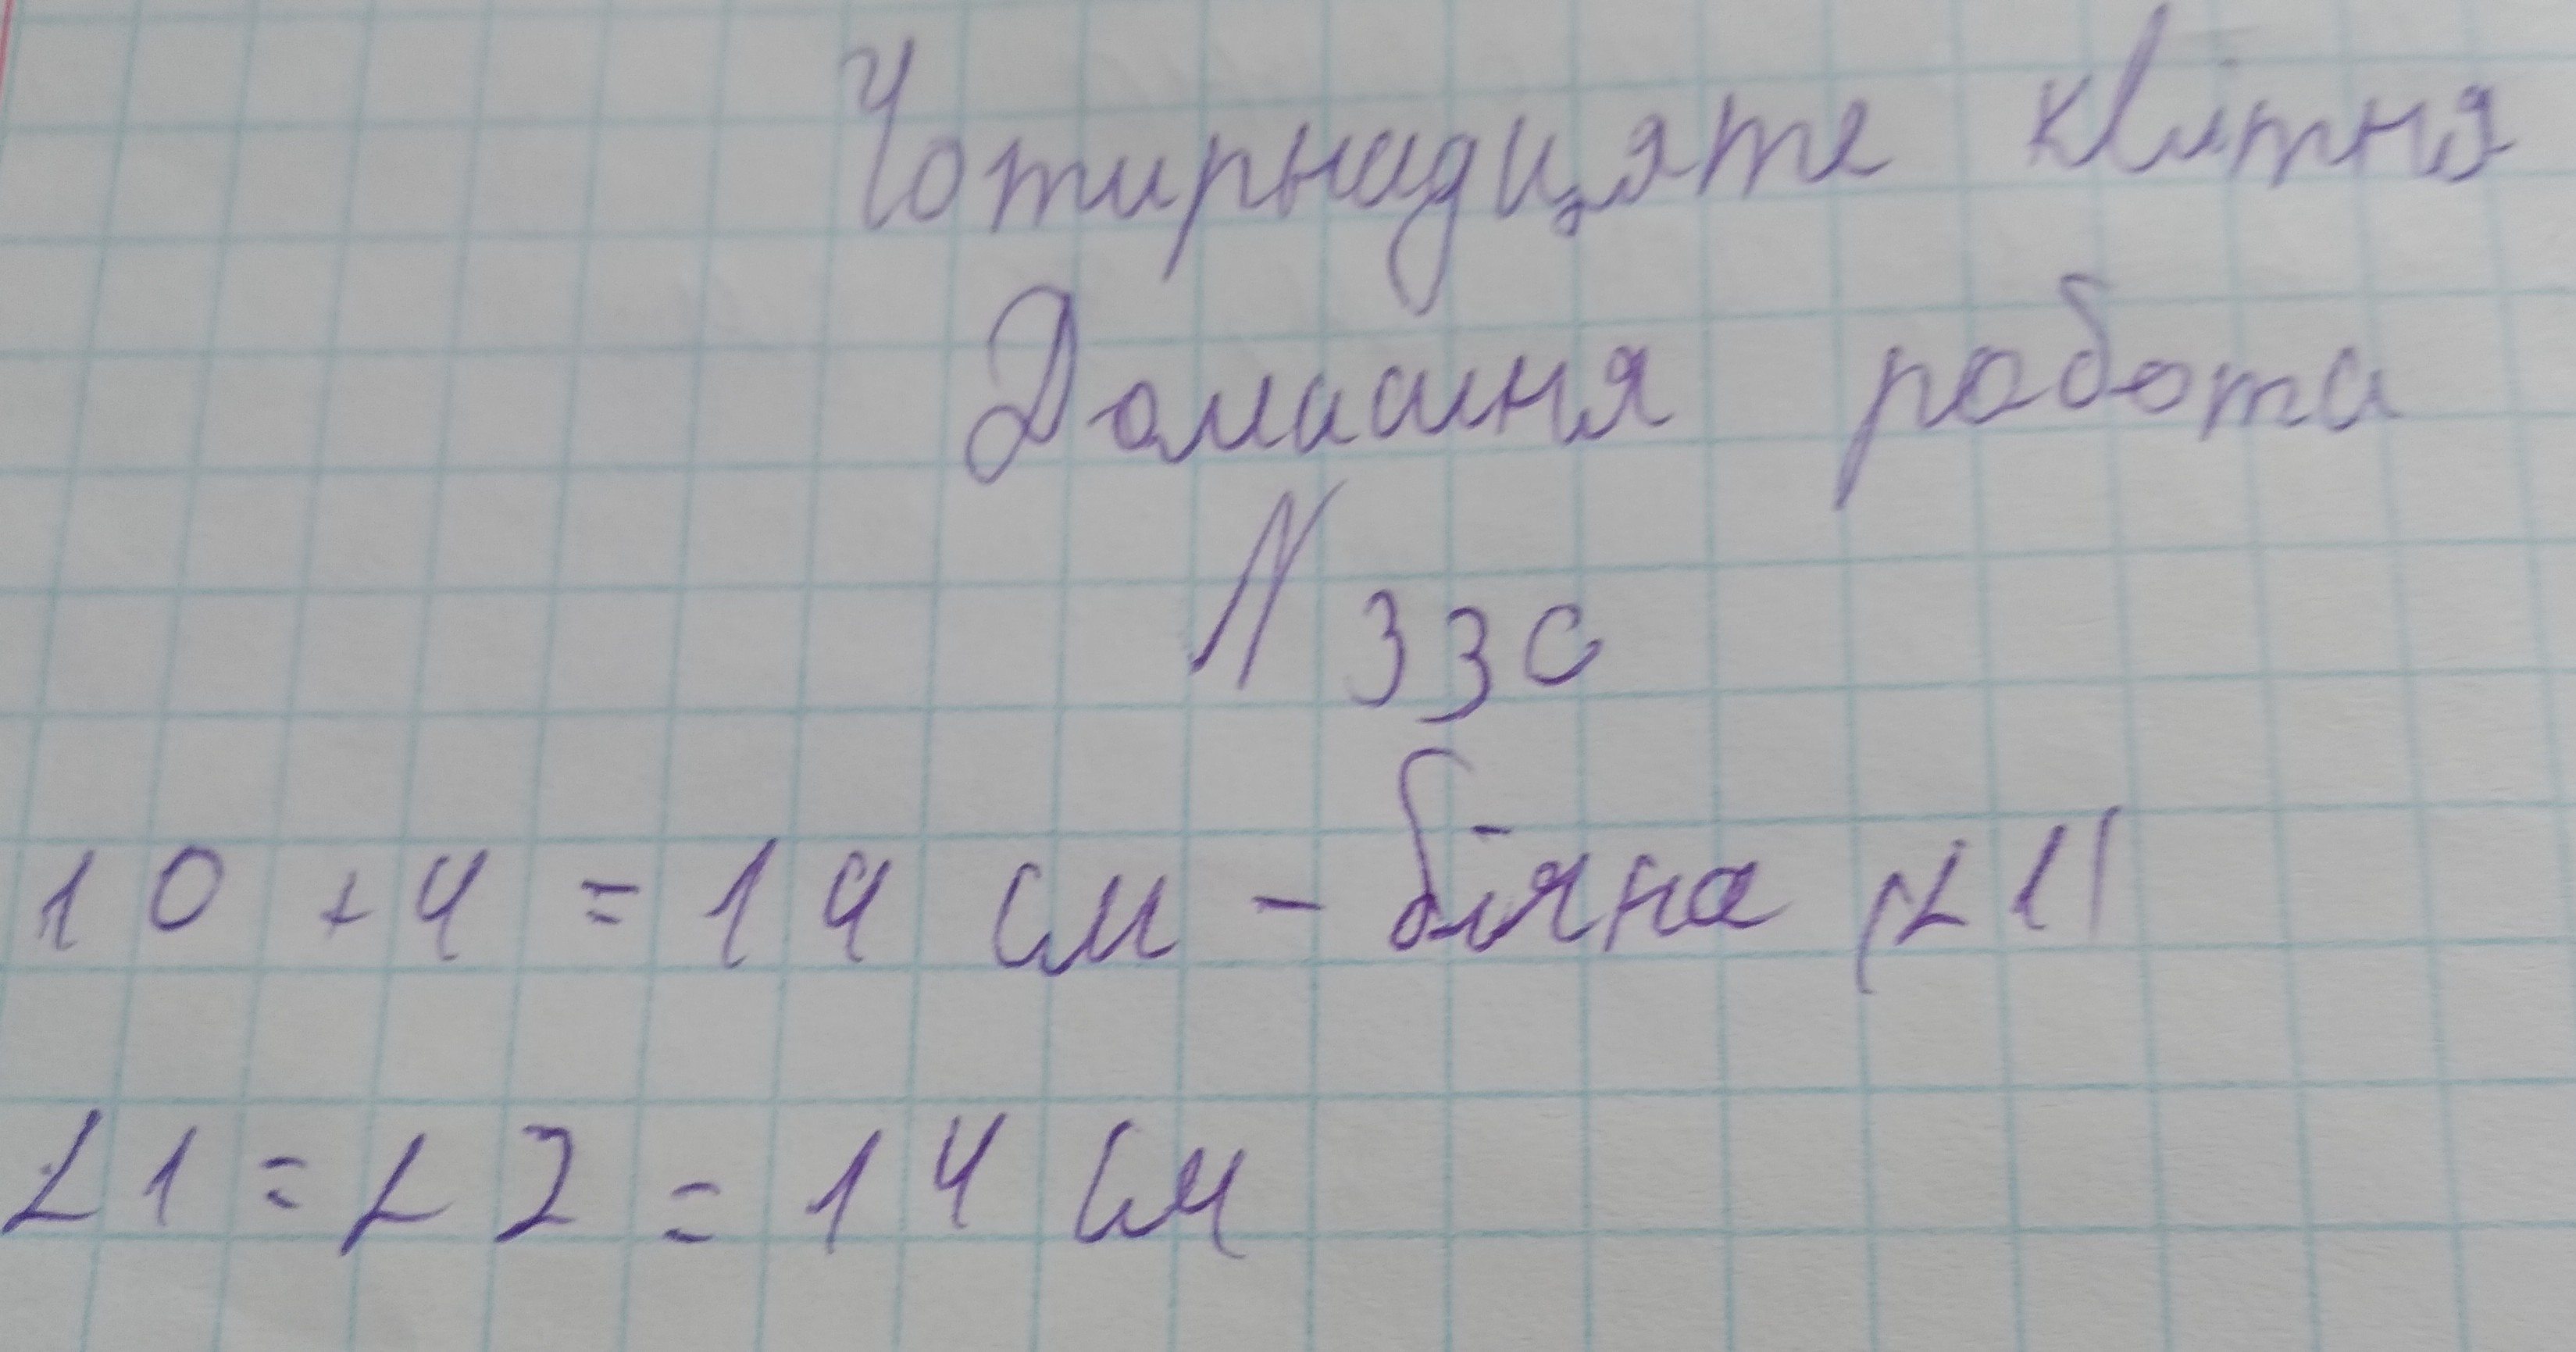 Чотирнадцяте квітня
Домашня робота
N 330
10 + 4 = 14 см - бічна (∠1)
∠1 = ∠2 = 14 см